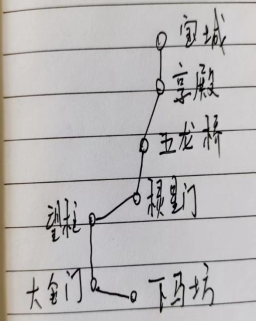 宝城
享殿
五龙桥
棂星门
望柱
大金门
下马坊